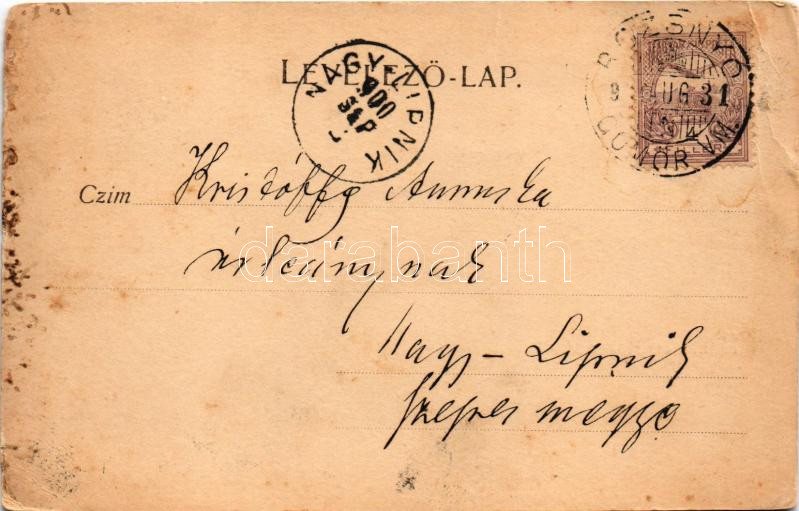 LEVELEZŐ-LAP.
NAGY-LIPNIK
900
SZP
ROZSNYÓ
9 AUG 31
GÖMÖR VM.
Czim Kristóffy Annuska
úrleánynak
Nagy-Lipnik
Szepes megye
darabanth